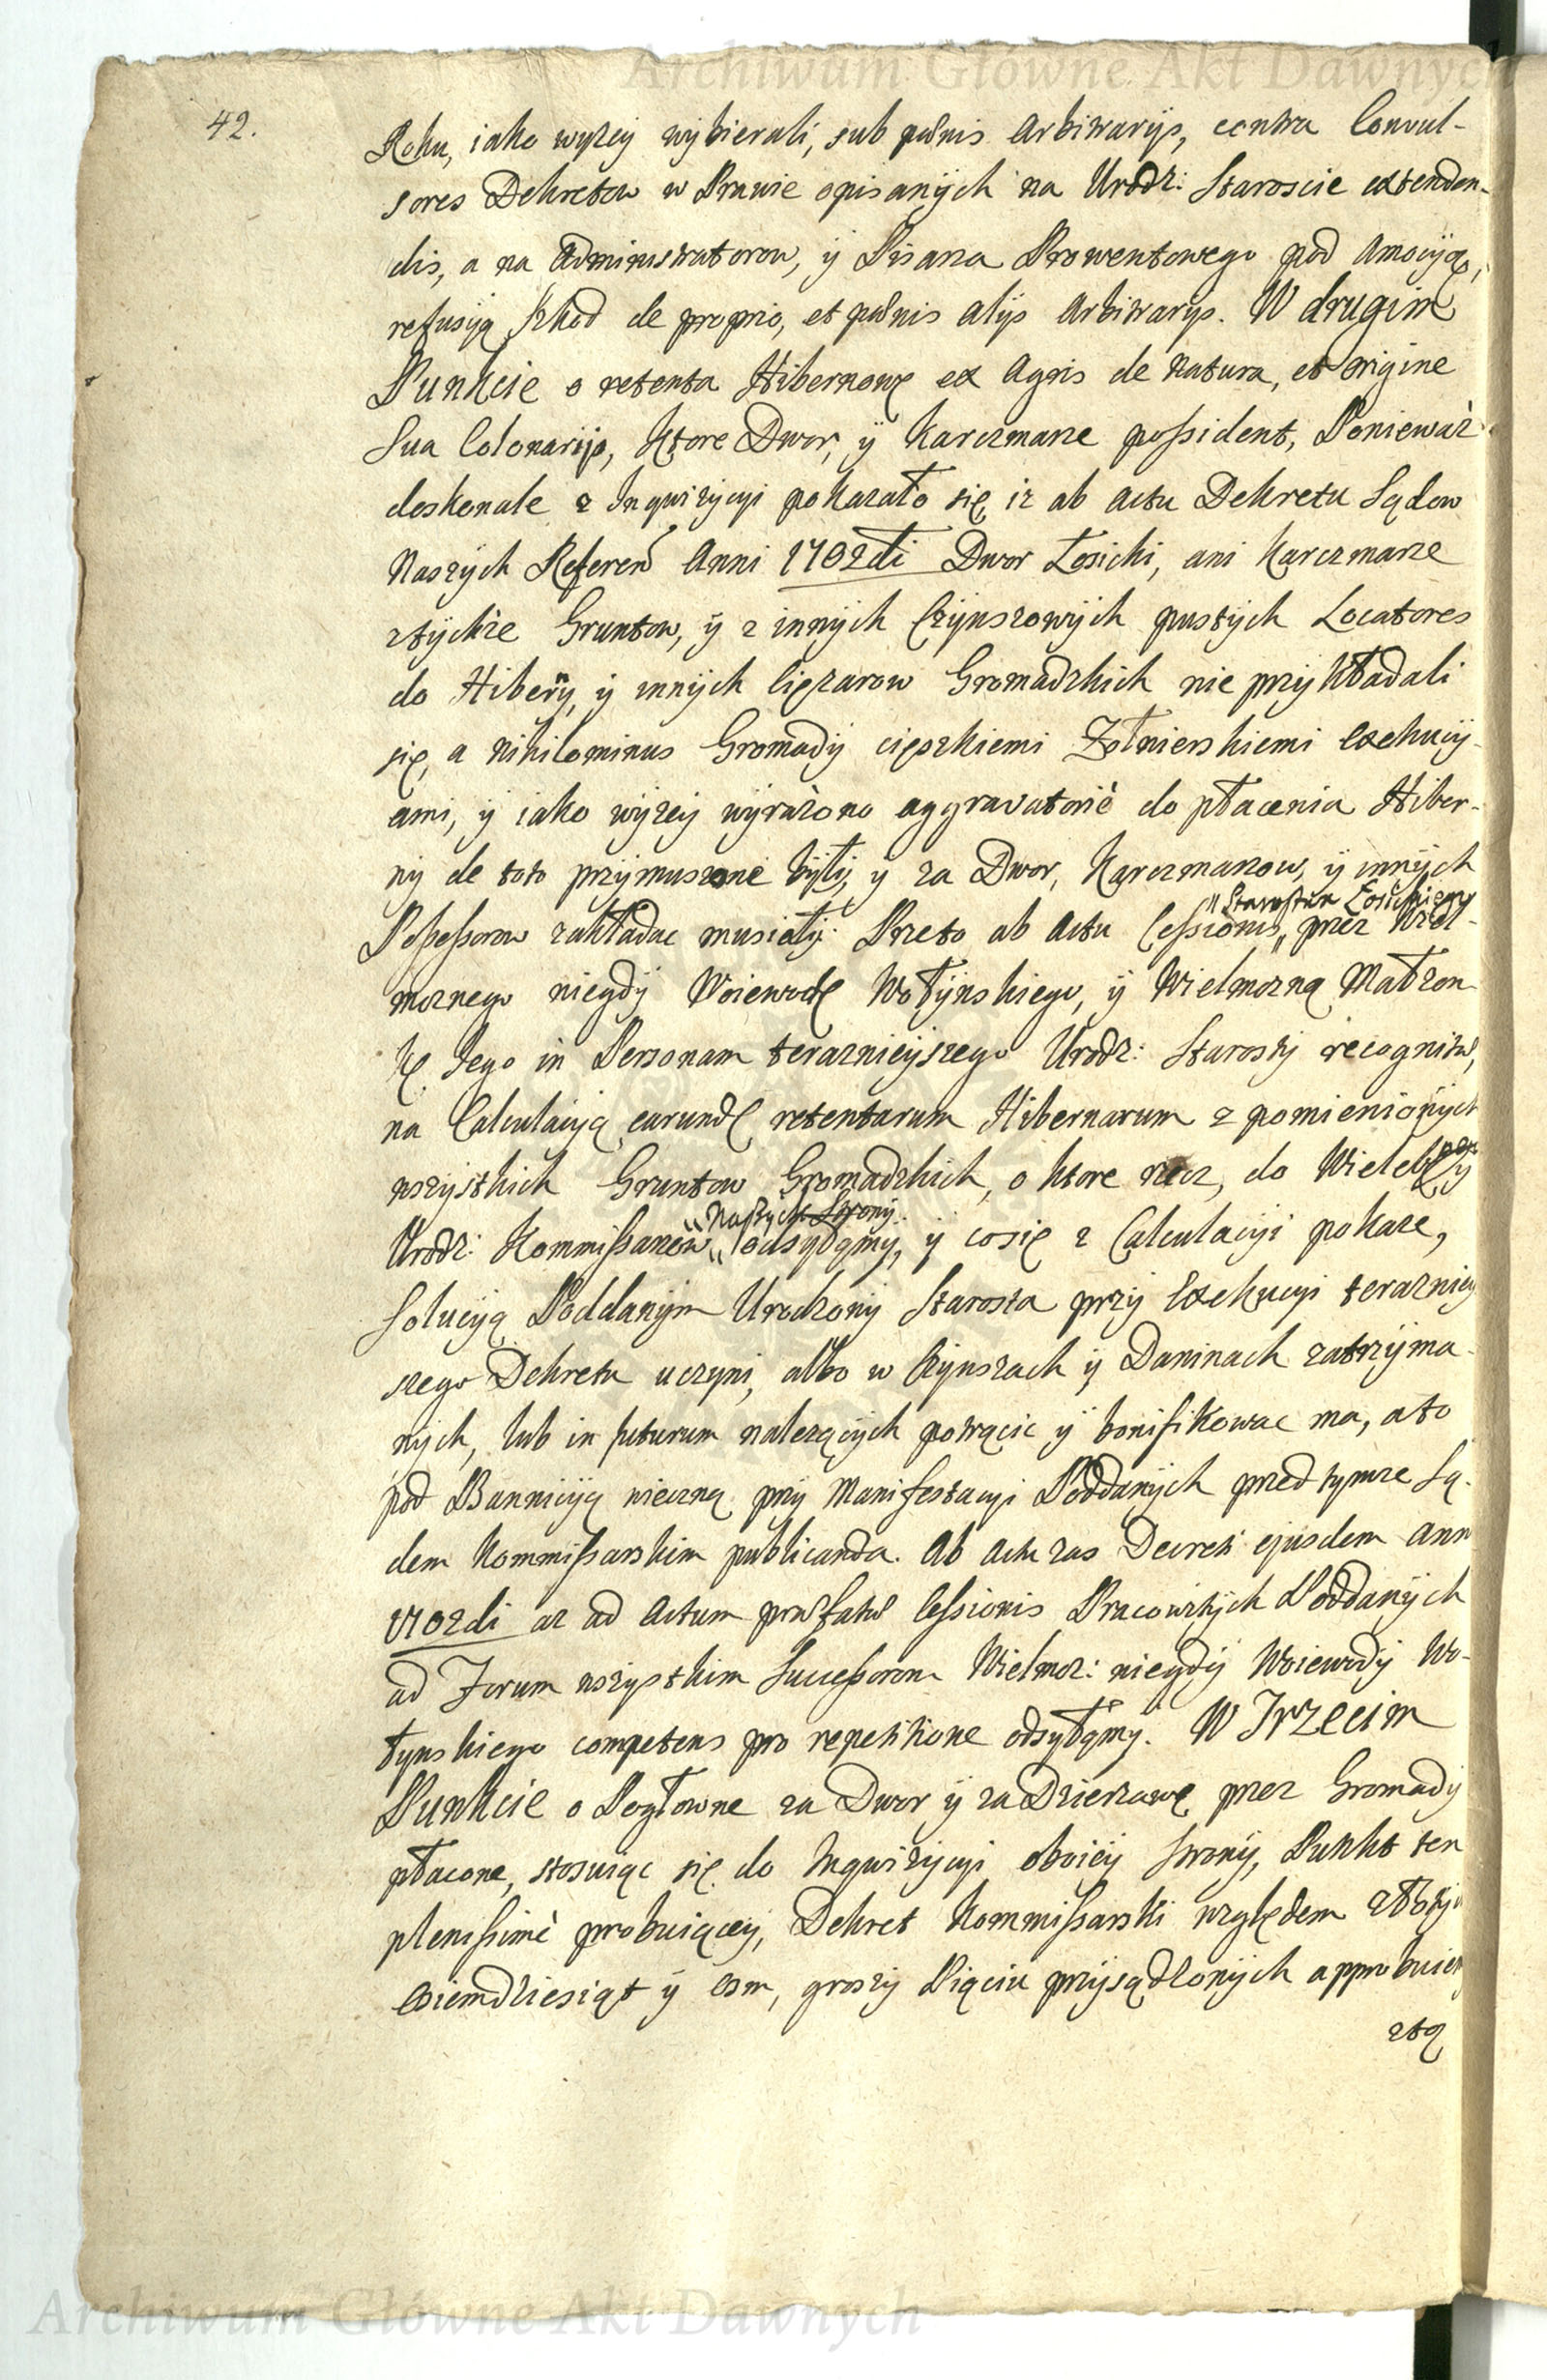 Archiwum Główne Akt Dawnych
42.
Roku, iako wyzey wybierali, sub pœnis Arbitrarijs, contra Convul-
sores Dekretow w Prawie opisanÿch na Urodz: Staroscie extenden-
dis, a na Administratorow, ÿ Pisarza Prowentowego pod Amocÿą,
refusÿą szkod de proprio, et pœnis alijs Arbitrarijs. W drugim
Punkcie o retenta Hibernowe ex Agris de Natura, et Origine
Sua Colonarijs, Ktore Dwor, ÿ Karczmarze possident, Poniewàż
doskonale z Inquizycyi pokazało się iz ab actu Dekretu Sądow
Naszych Referen Anni 1702di Dwor Łosicki, ani Karczmarze
ztÿchże Gruntow, ÿ z innÿch Czÿnszowÿch pustÿch Locatores
do Hibernÿ, ÿ innÿch Cięzarow Gromadzkich nie przÿkładali
się, a Nihilominus Gromadÿ cięszkiemi Zołnierskiemi Exekucÿ-
ami, ÿ iako wÿzey wÿrażono aggravatoriè do płacenia Hiber-
nÿ de toto przÿmuszone bÿłÿ, ÿ za Dwor, Karczmarzow, ÿ innÿch
Possessorow zakładac musiałÿ. Przeto ab Actu Cessionis " przez Wiel-
" Starostwa Łosickiego
moznego niegdÿ Woiewodę Wołÿnskiego, ÿ Wielmozną Małzon
kę Jego in Personam teraznieÿszego Urodz: Starostÿ recognitæ,
na Calculacÿą earundem retentarum Hibernarum z pomienionÿch
wszÿstkich Gruntow Gromadzkich, o ktore rzecz, do Wielebnego ÿ
Urodz: Kommissarzow " odsÿłamÿ, ÿ cosię z Calculacÿi pokaze,
" Naszÿch Stronÿ
Solucÿą Poddanÿm Urodzonÿ Starosta przÿ Exekucyi terazniey
szego Dekretu uczyni, albo w Czÿnszach ÿ Daninach zatrzÿma-
nÿch, lub in futurum nalezącÿch potrącic ÿ bonifikowac ma, a to
pod Bannicÿą wieczną przÿ Manifestacyi Poddanÿch przed tymze Są-
dem Kommissarskim publicanda. Ab Actu zas Decreti ejusdem Ann
1702di az ad Actum præfatæ Cessionis Pracowitÿch Poddanÿch
ad Forum wszÿstkim Successorom Wielmoz: niegdÿ Woiewodÿ Wo-
łynskiego competens pro repetitione odsyłąmÿ. W Trzecim
Punkcie o Pogłowne za Dwor ÿ za Dzierzawę przez Gromadÿ
płacone, stosuiąc się do Inquizÿcyi oboiey stronÿ, Punkt ten
plenissimè probuiącey, Dekret Kommissarski względem złotÿc
osiemdziesiąt ÿ osm, groszÿ Pięciu przÿsądzonÿch approbuiem
ztą
Archiwum Główne Akt Dawnych